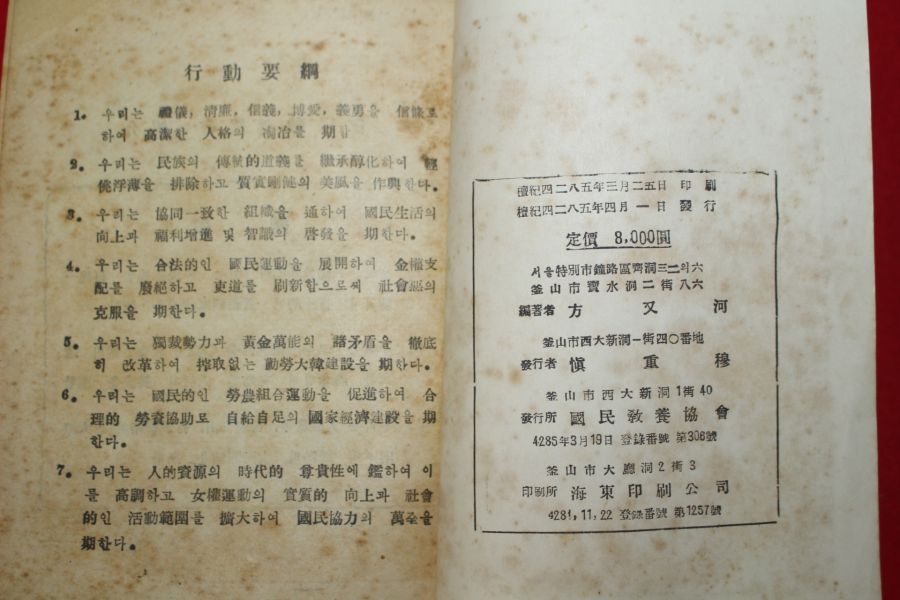 行動要綱
1. 우리는 禮儀, 淸廉, 信義, 博愛, 義勇을 信條로
하여 高潔한 人格의 陶冶를 期한
2. 우리는 民族의 傳統的道義를 繼承醇化하여 輕
佻浮薄을 排除하고 質實剛健의 美風을 作興한다.
3. 우리는 協同一致한 組織을 通하여 國民生活의
向上과 福利增進 및 智識의 啓發을 期한다.
4. 우리는 合法的인 國民運動을 展開하여 金權支
配를 廢絕하고 吏道를 刷新함으로써 社會惡의
克服을 期한다.
5. 우리는 獨裁勢力과 黃金萬能의 諸矛盾을 徹底
히 改革하여 搾取없는 勤勞大韓建設을 期한다.
6. 우리는 國民的인 勞農組合運動을 促進하여 合
理的 勞資協助로 自給自足의 國家經濟建設을 期
한다.
7. 우리는 人的資源의 時代的 尊貴性에 鑑하여 이
를 高調하고 女權運動의 實質的 向上과 社會
的인 活動範圍를 擴大하여 國民協力의 萬全을
期한다.
檀紀四二八五年三月二五日 印刷
檀紀四二八五年四月一日 發行
定價 8,000圓
서울特別市鐘路區齊洞三二의六
釜山市寶水洞二街八六
編著者 方又河
釜山市西大新洞一街四〇番地
發行者 愼重穆
釜山市西大新洞1街40
發行所 國民敎養協會
4285年3月19日 登錄番號 第306號
釜山市大廳洞2街3
印刷所 海東印刷公司
4281,11,22 登錄番號 第1257號